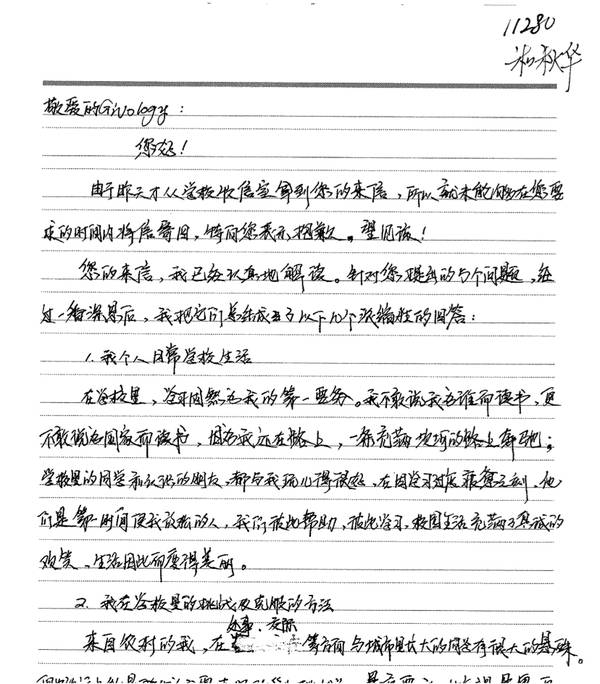 11280
秋华
敬爱的Givology:
您好!
由于昨天才从学校收信室拿到您的来信,所以就未能够在您要
求的时间内将信寄回,特向您表示抱歉。望见谅!
您的来信,我已经认真地解读。针对您提出的5个问题,经
过一番深思后,我把它们总结成了以下几个浓缩性的回答:
1.我个人日常学校生活
在学校里,学习固然是我的第一要务。我不敢说我为谁而读书,更
不敢说为国家而读书,因为我还在路上,一条充满坎坷的路上奔驰;
学校里的同学和认识的朋友,都与我玩儿得很好,在因学习过度疲惫之刻,他
们是第一时间使我放松的人,我们彼此帮助,彼此学习,校园生活充满了真诚的
欢笑、生活因此而变得美丽。
2.我在学校里的挑战及克服的方法
处事、交际
来自农村的我,在等方面与城市里长大的同学有很大的悬殊。